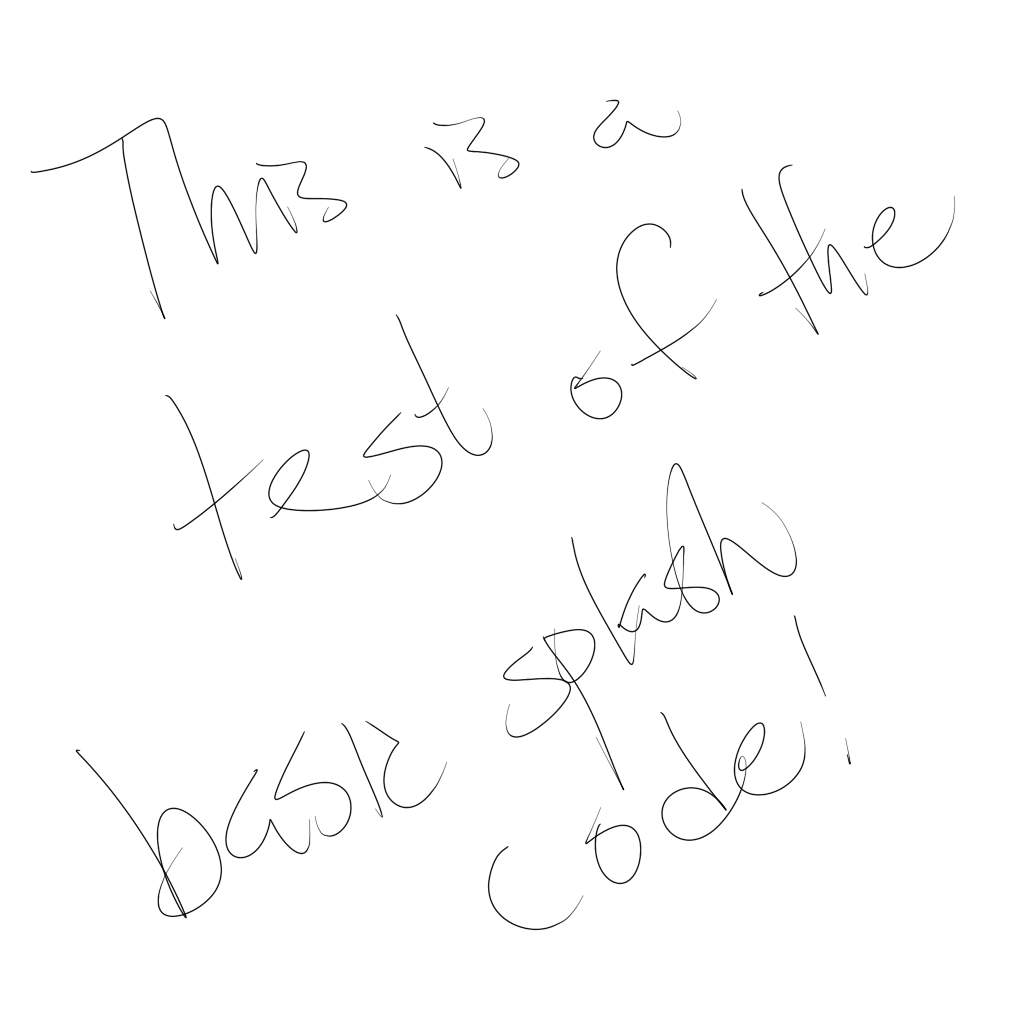 This is a
test of the
basic splash
code!